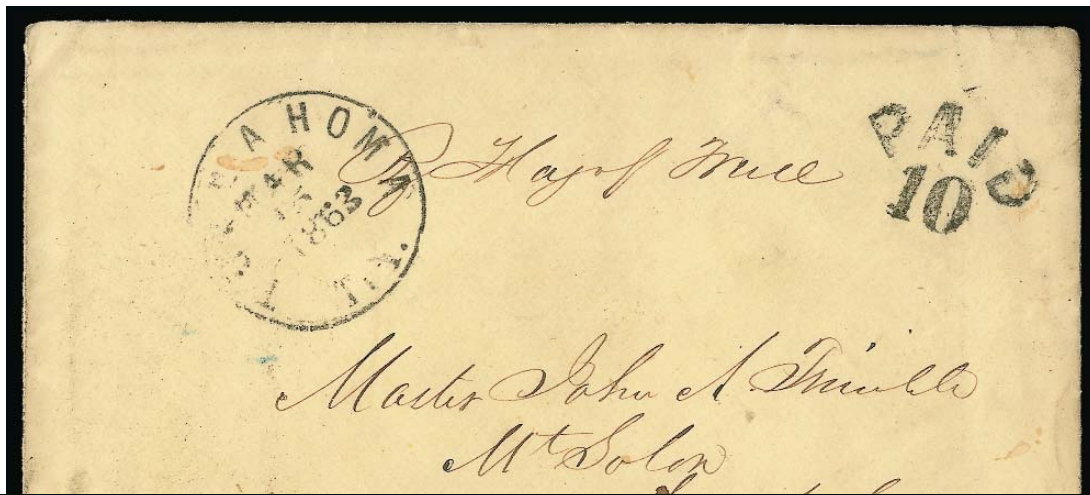 TULLAHOMA
MAR
15
1863
Flag of Truce
PAID
10
Master John A Trimble
Mt Solon